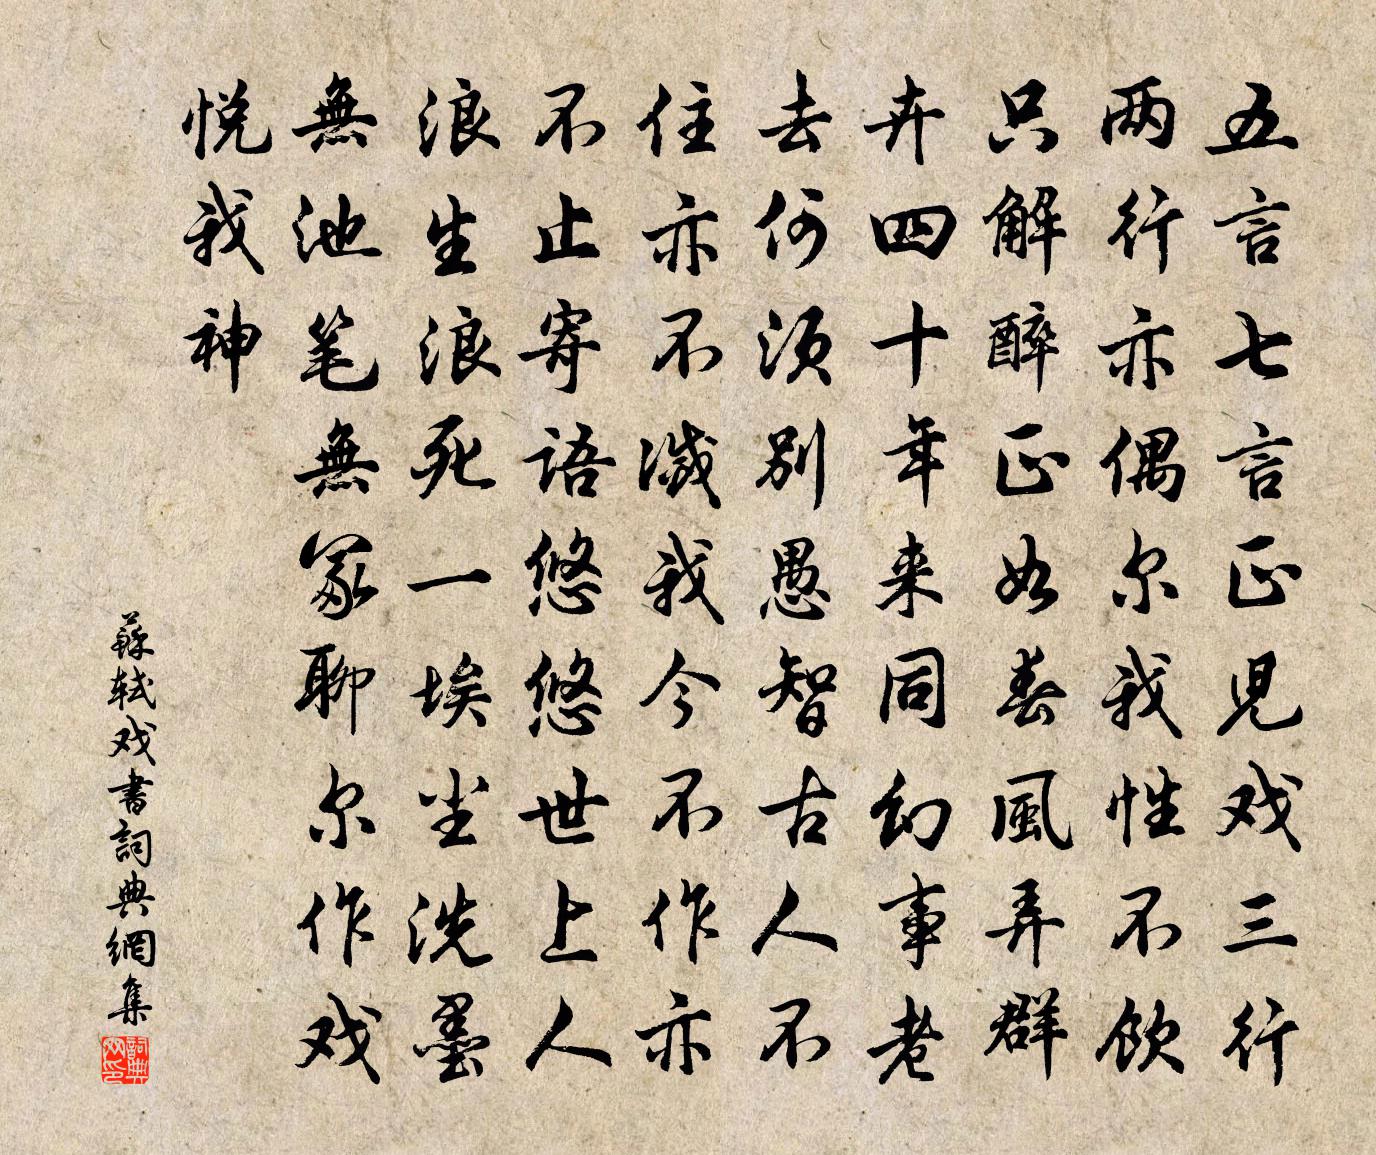 五言七言正兒戏三行
两行亦偶尔我性不飲
只解醉正如春風弄群
卉四十年来同幻事老
去何須别愚智古人不
住亦不滅我今不作亦
不止寄語悠悠世上人
浪生浪死一埃尘洗墨
無池笔無冢聊尔作戏
悦我神
蘇軾戏書詞典網集
詞典网印